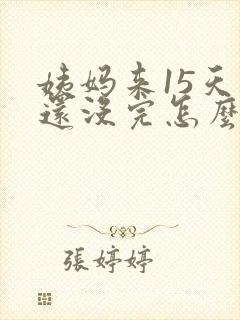 姨妈来15天
還沒完怎麼
張婷婷